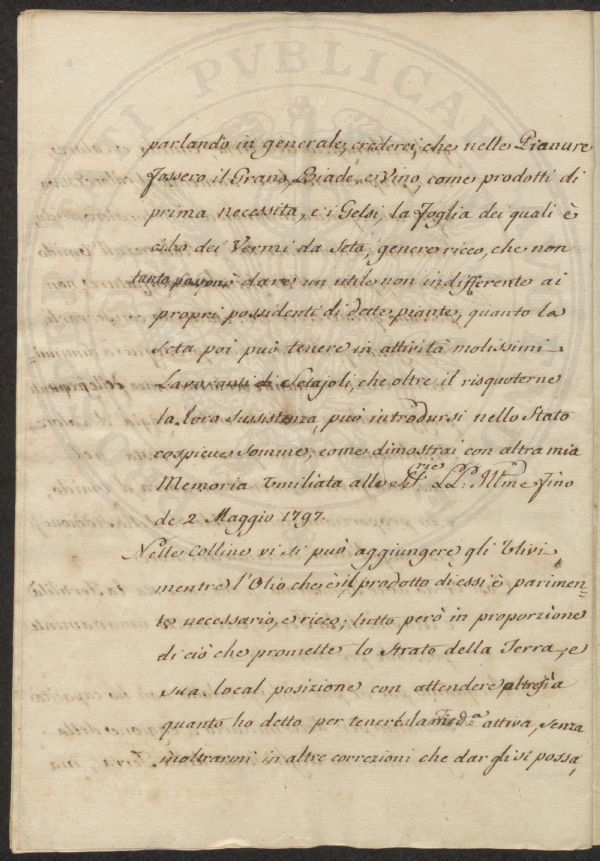 parlando in generale, crederei, che nelle Pianure
fossero il Grano, Biade, e Vino, come prodotti di
prima necessita, e i Gelsi, la foglia dei quali è
cibo dei Vermi da Seta, genere ricco, che non
tanto può dare un utile non indifferente ai
propri possidenti di dette piante, quanto la
Seta poi può tenere in attività molissimi
Lavoranti di Setajoli, che oltre il risquoterne
la loro sussistenza, può introdursi nello Stato
cospicue somme, come dimostrai con altra mia
Memoria Umiliata alle LL: Illme fino
de 2 Maggio 1797.
Nelle Colline vi si può aggiungere gli Ulivi
mentre l'Olio che è il prodotto di essi è parimen=
te necessario, e ricco; tutto però in proporzione
di ciò che promette lo Strato della Terra, e
sua local posizione con attendere altresì a
quanto ho detto per tenere la med.a attiva, senza
inoltrarmi in altre correzioni che dar gli si possa,
PUBLICA